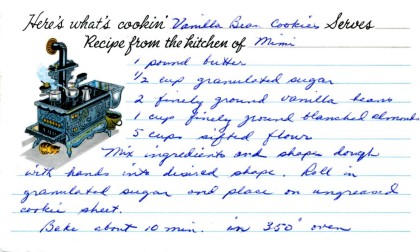 Here's what's cookin' Vanilla Bean Cookies Serves
Recipe from the kitchen of Mimi
1 pound butter
1/2 cup granulated sugar
2 finely ground vanilla beans
1 cup finely ground blanched almonds
5 cups sifted flour
Mix ingredients and shape dough
with hands into desired shape. Roll in
granulated sugar and place on ungreased
cookie sheet.
Bake about 10 min. in 350° oven